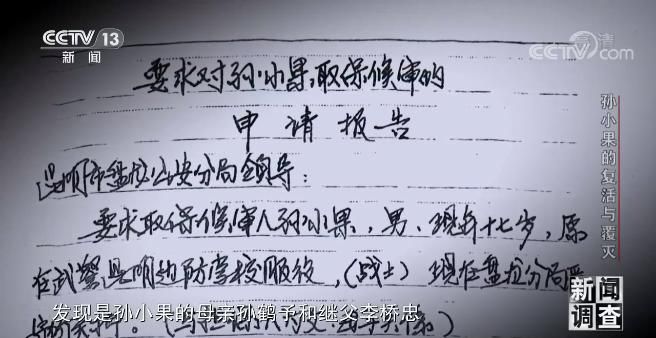 CCTV 13
新闻
高清
CCTV.com
要求对孙小果取保候审的
申请报告
昆明市盘龙公安分局领导：
要求取保候审人孙小果，男、现年十七岁，原
在武警昆明边防学校服役，(战士) 现在盘龙分局
发现是孙小果的母亲孙鹤予和继父李桥忠
孙小果的复活与覆灭
新闻
调查